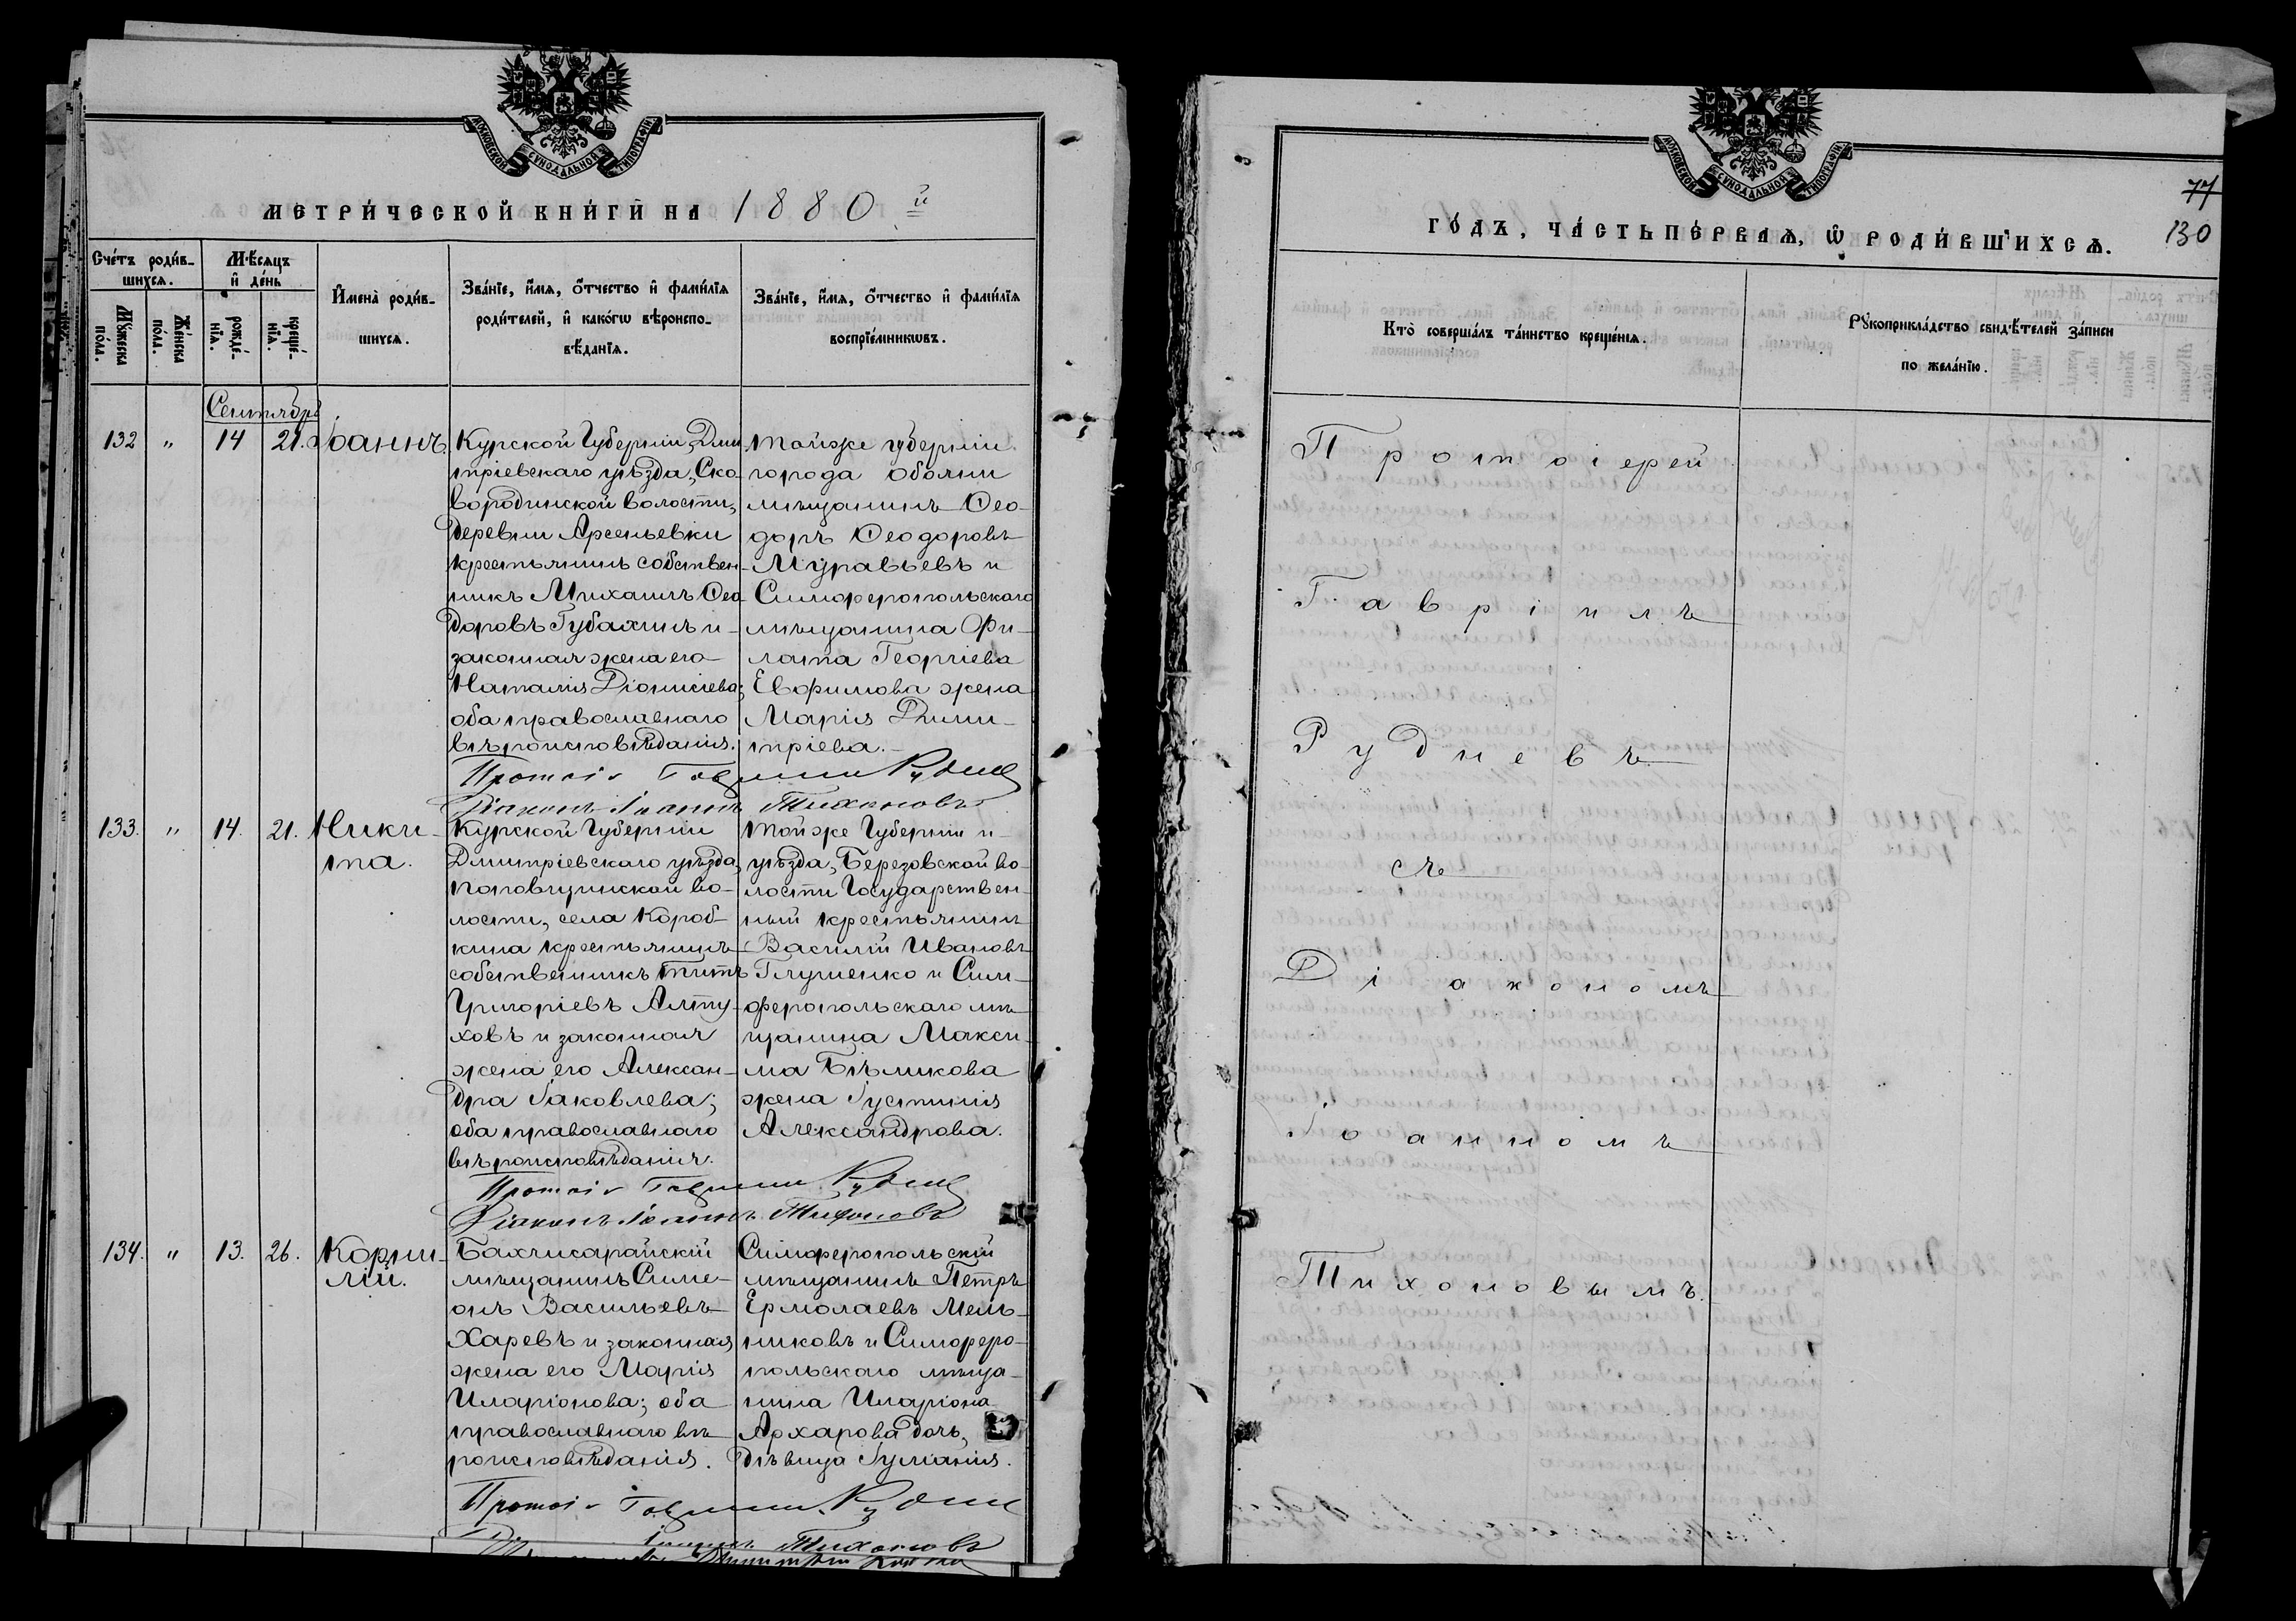 МОСКОВСКОЙ СѴНОДАЛЬНОЙ ТИПОГРАФІИ
МЕТРИ́ЧЕСКОЙ КНИ́ГИ НА 1880 й
Сче́тъ роди́в-
шихся.
Мꙋ́жеска по́ла.
Же́нска по́ла.
Мѣ́сяцъ и де́нь
рожде́-нїѧ.
креще́-нїѧ.
И҆мена̀ роди́в-
шихся.
Зва́нїе, и҆́мѧ, ѻ҆́тчество и҆ фами́лїѧ
роди́телей, и҆ како́гѡ вѣроиспо-
вѣ́данїѧ.
Зва́нїе, и҆́мѧ, ѻ҆́тчество и҆ фами́лїѧ
воспрїе́мникѡвъ.
Сентябрь
132 " 14 21. Іоаннъ
Курской Губерніи, Дми
тріевскаго уѣзда, Ско-
вородинской волости,
деревни Арсеньевки
крестьянинъ собствен-
никъ Михаилъ Ѳео-
доровъ Губахинъ и
законная жена его
Наталія Діонисіева;
оба православнаго
вѣроисповѣданія.
Тойже губерніи
города Обояни
мѣщанинъ Ѳео-
доръ Ѳеодоровъ
Муравьевъ и
Симферопольскаго
мѣщанина Фи-
лата Георгіева
Евфимова жена
Марія Дими-
тріева.
Протоі Гавріилъ Рудневъ
Діаконъ Іоаннъ Тихоновъ
133. " 14. 21. Ники-
та.
Курской Губерніи
Дмитріевскаго уѣзда,
Поповщинской во-
лости, села Короб-
кина крестьянинъ
собственникъ Титъ
Григоріевъ Алту-
ховъ и законная
жена его Алексан-
дра Іаковлева;
оба православнаго
вѣроисповѣданія.
Тойже Губерніи и
уѣзда, Березовской во-
лости Государствен-
ный крестьянинъ
Василій Ивановъ
Глушенко и Сим-
феропольскаго мѣ-
щанина Макси-
ма Бѣликова
жена Іустинія
Александрова.
Протоі Гавріилъ Рудневъ
Діаконъ Іоаннъ Тихоновъ
134. " 13. 26. Корни-
лій.
Бахчисарайскій
мѣщанинъ Симе-
онъ Васильевъ
Харевъ и законная
жена его Марія
Иларіонова; оба
православнаго вѣ-
роисповѣданія.
Симферопольскій
мѣщанинъ Петръ
Ермолаевъ Мель-
никовъ и Симферо-
польскаго мѣща-
нина Иларіона
Архарова дочь,
дѣвица Іуліанія.
Протоі Гавріилъ Рудневъ
Іоаннъ Тихоновъ
МОСКОВСКОЙ СѴНОДАЛЬНОЙ ТИПОГРАФІИ
77
130
ГО́ДЪ, ЧА́СТЬ ПЕ́РВАѦ, Ѡ҆ РОДИ́ВШИХСѦ.
Кто̀ соверша́лъ та́инство креще́нїѧ.
Рꙋкоприкла́дство свидѣ́телей за́писи
по жела́нїю.
Протоіерей
Гавріилъ
Рудневъ
съ
Діакономъ
Іоанномъ
Тихоновымъ.